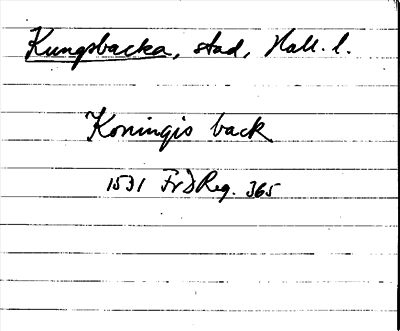 Kungsbacka, stad, Hall. l.
Koningis back
1531 FrIReg. 365